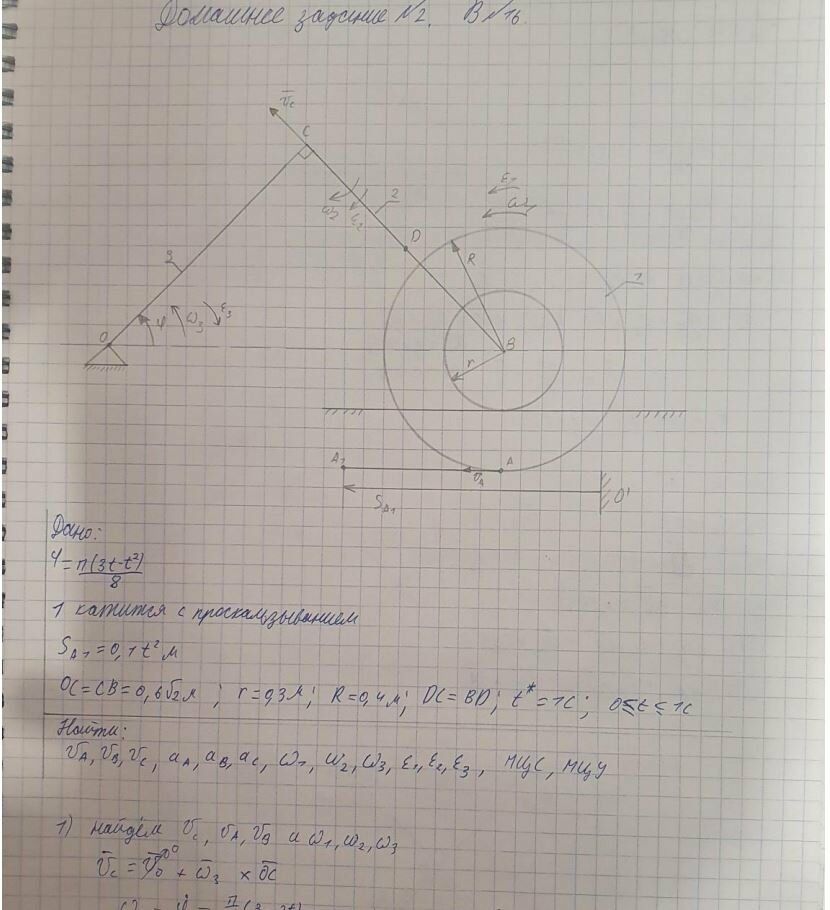 Домашнее задание №2. В№16.
v̅c
C
2
ω2
ε2
ε1
ω1
D
R
1
3
φ
ω3
ε3
O
B
r
A1
A
v̅A
SA1
O'
Дано:
φ = π(3t-t²)/8
1 катится с проскальзыванием
SA1 = 0,1t² м
OC = CB = 0,6√2 м ; r = 0,3 м ; R = 0,4 м ; DC = BD ; t* = 1с ; 0 ≤ t ≤ 1с
Найти:
v̅A, v̅B, v̅C, aA, aB, aC, ω1, ω2, ω3, ε1, ε2, ε3, МЦС, МЦУ
1) найдём v̅c, v̅A, v̅B и ω1, ω2, ω3
v̅c = v̅o⁰ + ω̅3 × O̅C̅